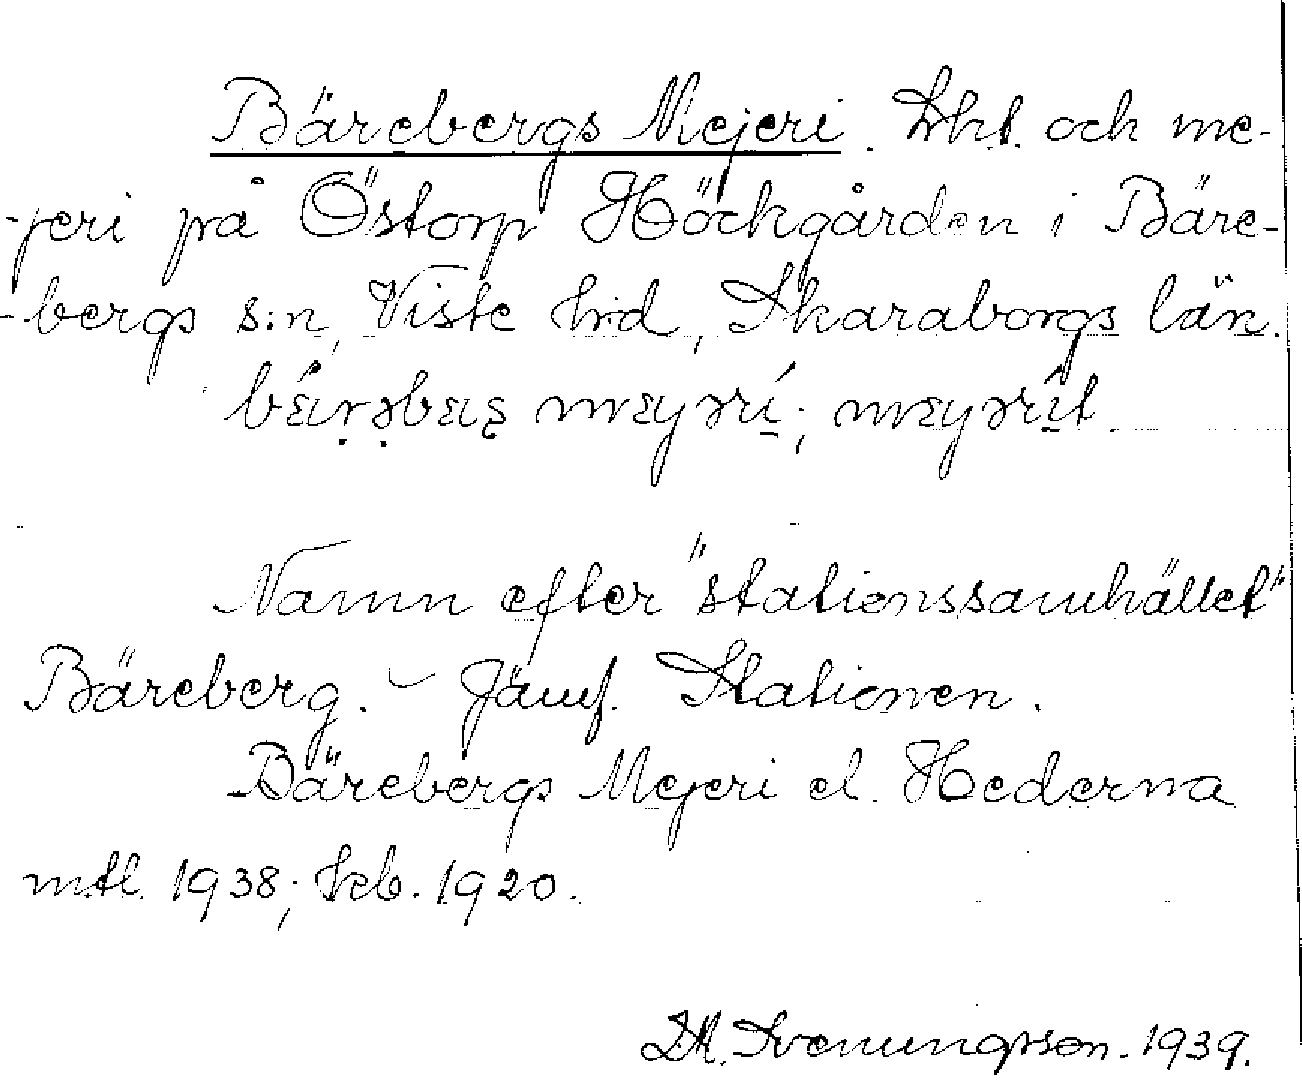 Bärebergs Mejeri. Lht. och me-
-jeri på Östorp Höckgården i Bäre-
-bergs s:n, Viste hrd, Skaraborgs län.
bɛ́ɩṛə̣bɛɩȿ mɛyərí; mɛyərít
Namn efter "stationssamhället"
Bäreberg. – Jämf. Stationen.
Bärebergs Mejeri el. Hederna
mtl. 1938; kb. 1920.
Svenungsson. 1939.